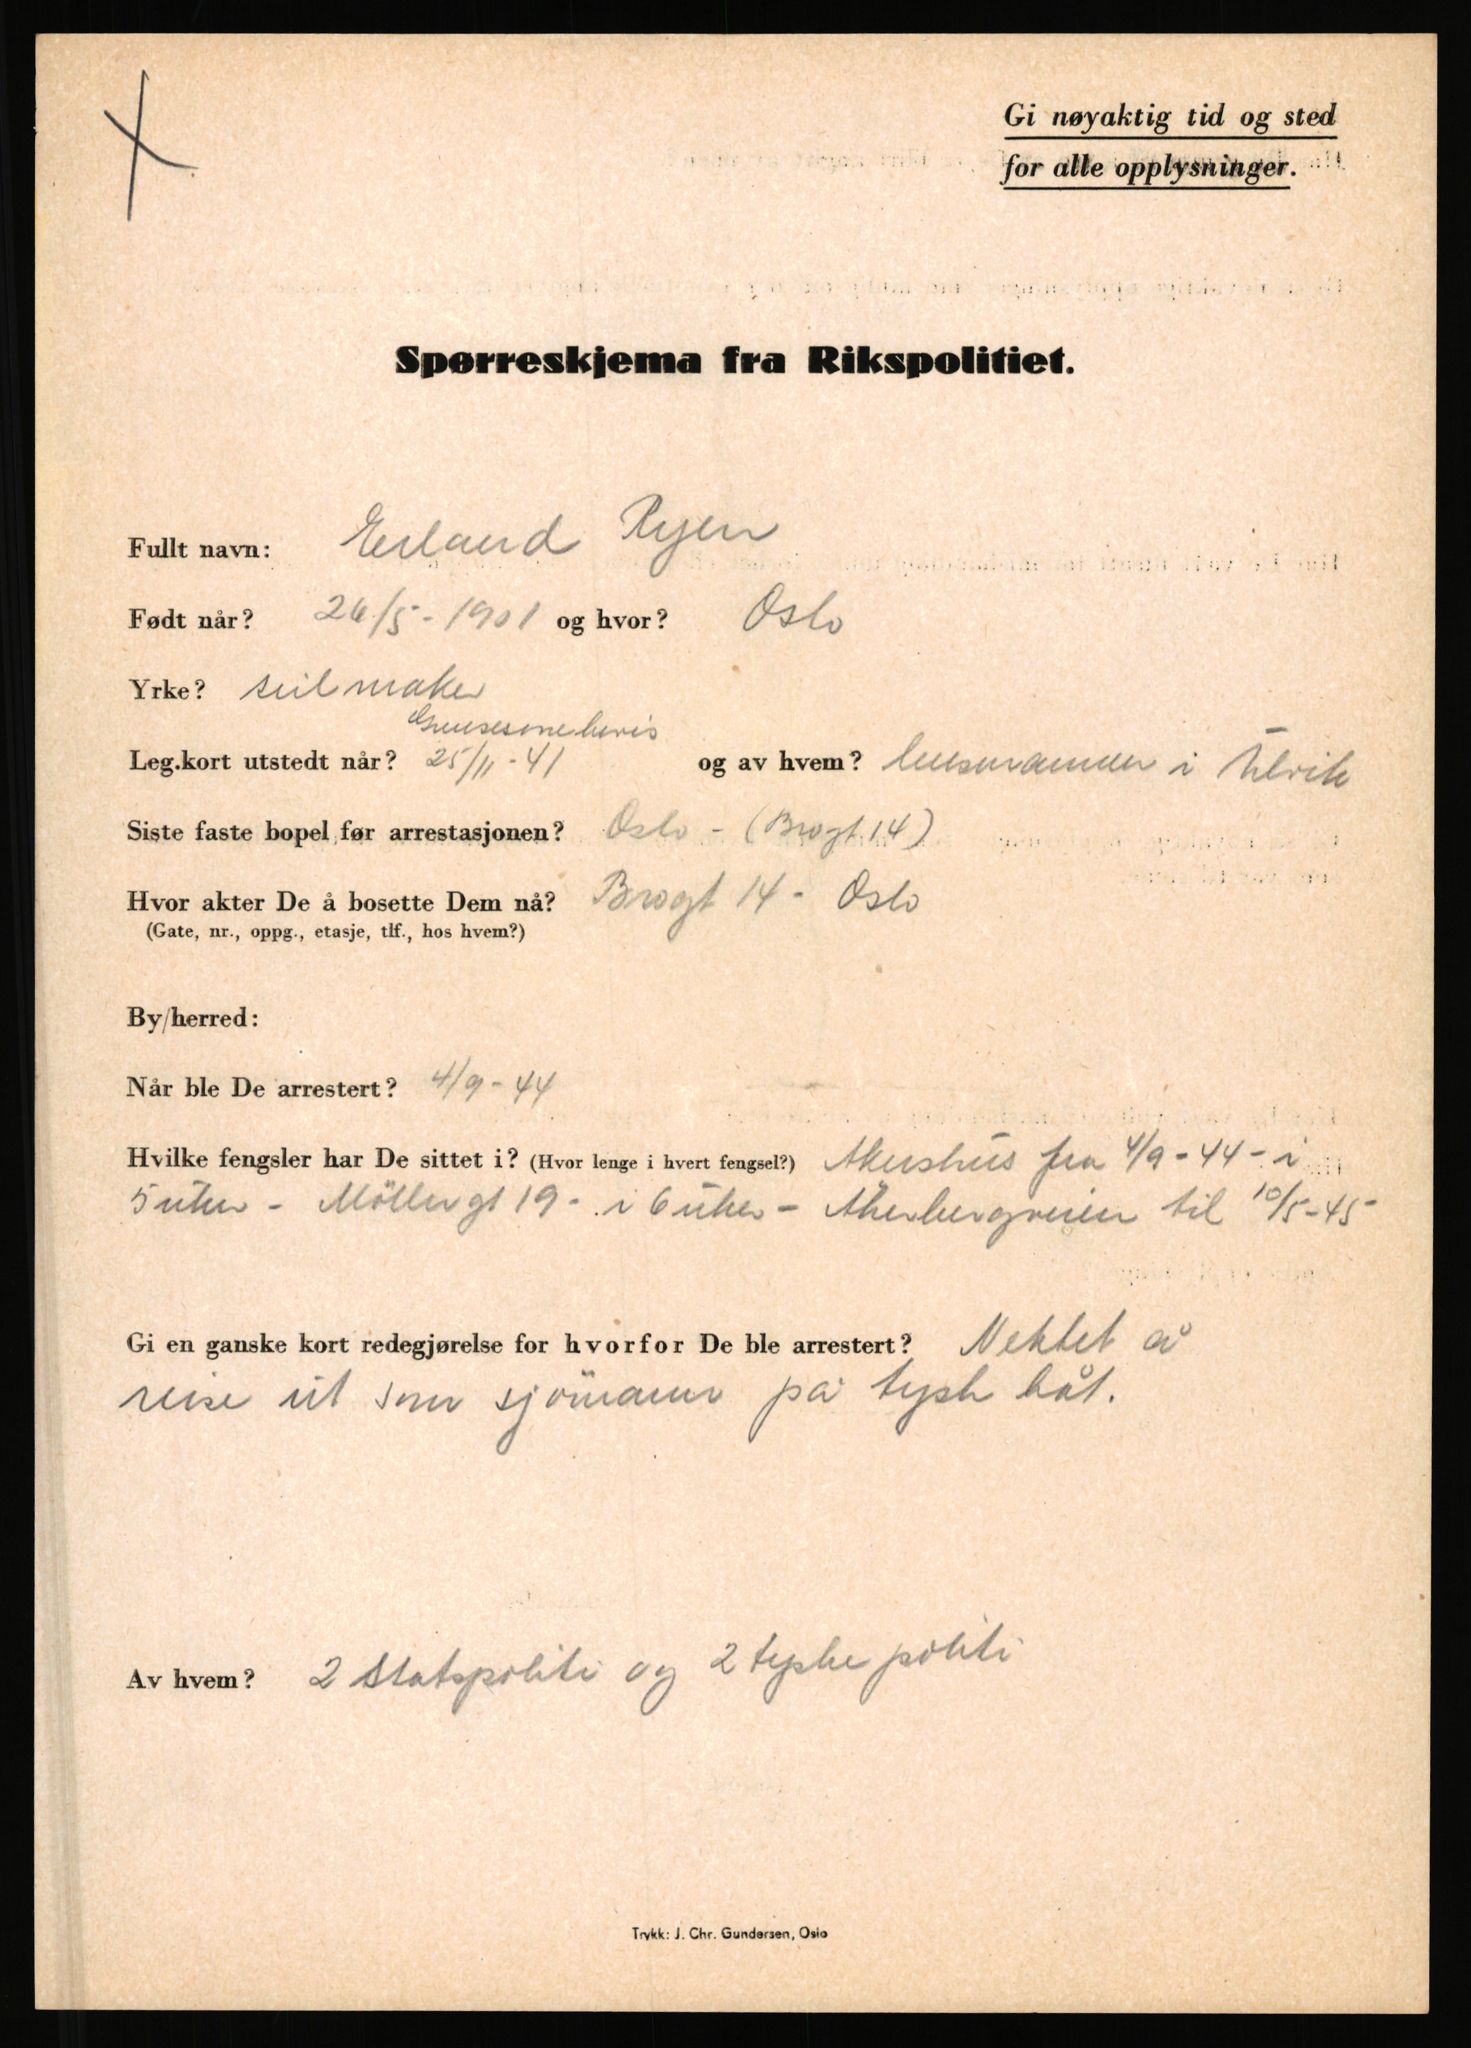 Gi nøyaktig tid og sted
for alle opplysninger.
Spørreskjema fra Rikspolitiet.
Fullt navn: Erland Ryen
Født når? 26/5-1901 og hvor? Oslo
Yrke? seilmaker
Grensesonebevis
Leg.kort utstedt når? 25/11-41 og av hvem? lensmannen i Ulvik
Siste faste bopel før arrestasjonen? Oslo - (Brogt. 14)
Hvor akter De å bosette Dem nå? Brogt 14 - Oslo
(Gate, nr., oppg., etasje, tlf., hos hvem?)
By/herred:
Når ble De arrestert? 4/9-44
Hvilke fengsler har De sittet i? (Hvor lenge i hvert fengsel?) Akershus fra 4/9-44 - i
5 uker - Möllergt 19 - i 6 uker - Akerbergveien til 10/5-45
Gi en ganske kort redegjørelse for hvorfor De ble arrestert? Nektet å
reise ut som sjömann på tysk båt.
Av hvem? 2 Statspoliti og 2 tyske politi
Trykk: J. Chr. Gundersen, Oslo